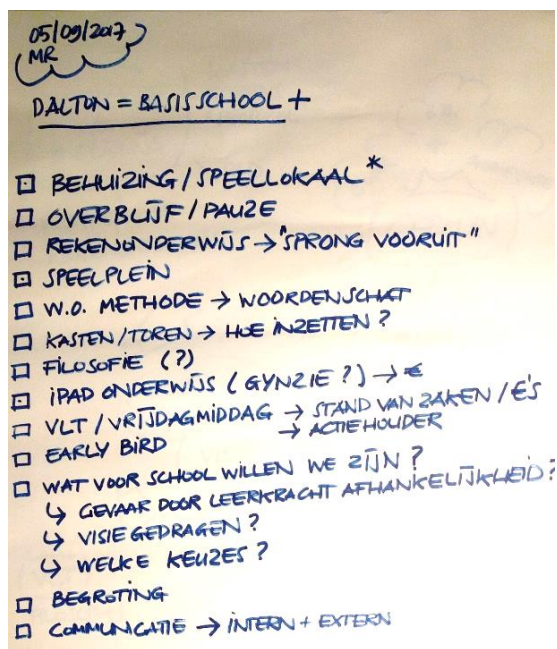 05/09/2017
MR
DALTON = BASISSCHOOL +
BEHUIZING / SPEELLOKAAL *
OVERBLIJF / PAUZE
REKENONDERWIJS → "SPRONG VOORUIT"
SPEELPLEIN
W.O. METHODE → WOORDENSCHAT
KASTEN / TOREN → HOE INZETTEN ?
FILOSOFIE (?)
IPAD ONDERWIJS ( GYNZIE ? ) → €
VLT / VRIJDAGMIDDAG → STAND VAN ZAKEN / €'S
→ ACTIEHOUDER
EARLY BIRD
WAT VOOR SCHOOL WILLEN WE ZIJN ?
↳ GEVAAR DOOR LEERKRACHT AFHANKELIJKHEID ?
↳ VISIE GEDRAGEN ?
↳ WELKE KEUZES ?
BEGROTING
COMMUNICATIE → INTERN + EXTERN